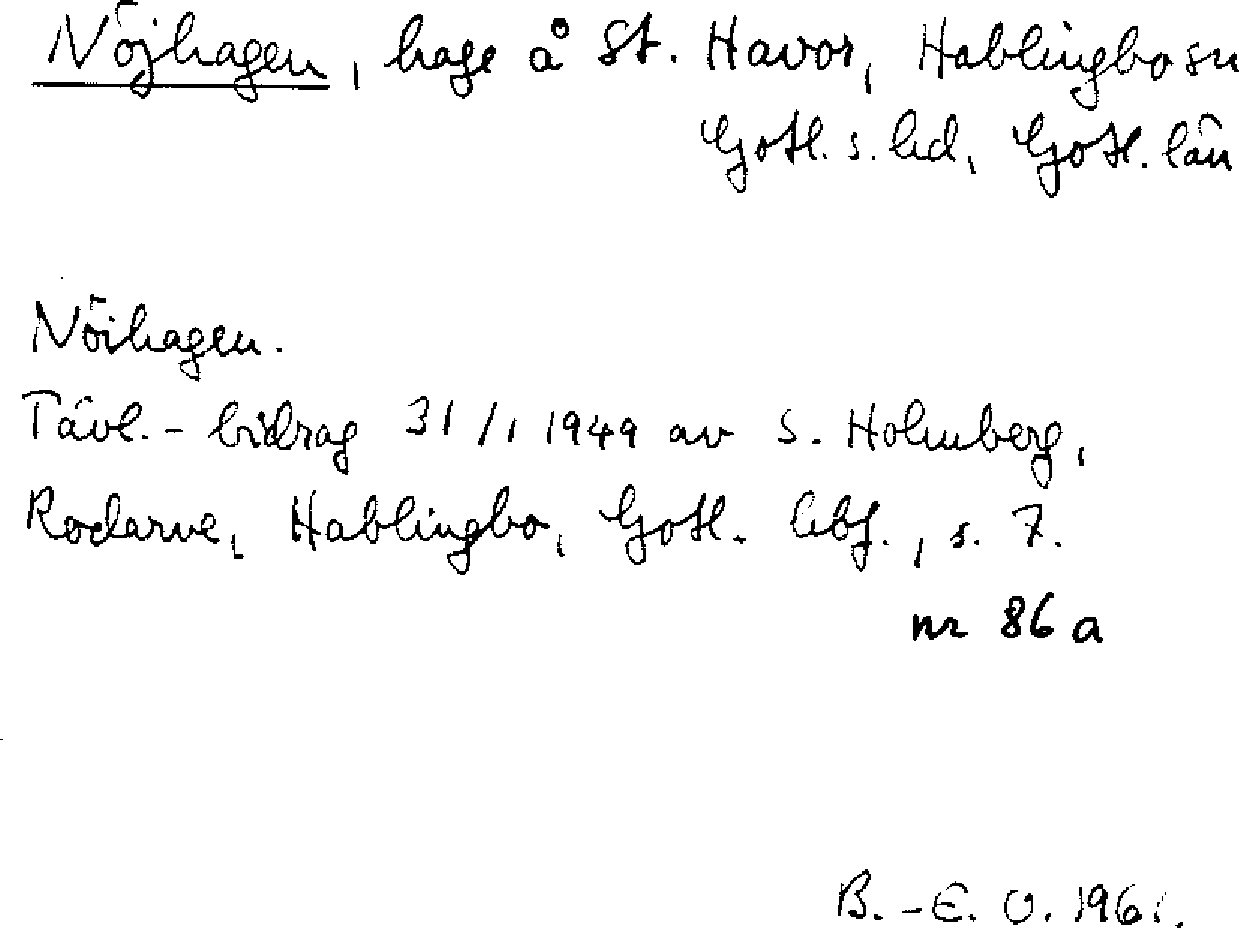 Nöjhagen, hage å St. Havor, Hablingbo sn
Gotl. s. hd, Gotl. län
Nöihagen.
Tävl.-bidrag 31/1 1949 av S. Holmberg,
Rodarve, Hablingbo, Gotl. lbf., s. 7.
nr 86 a
B.-E. O. 1961.